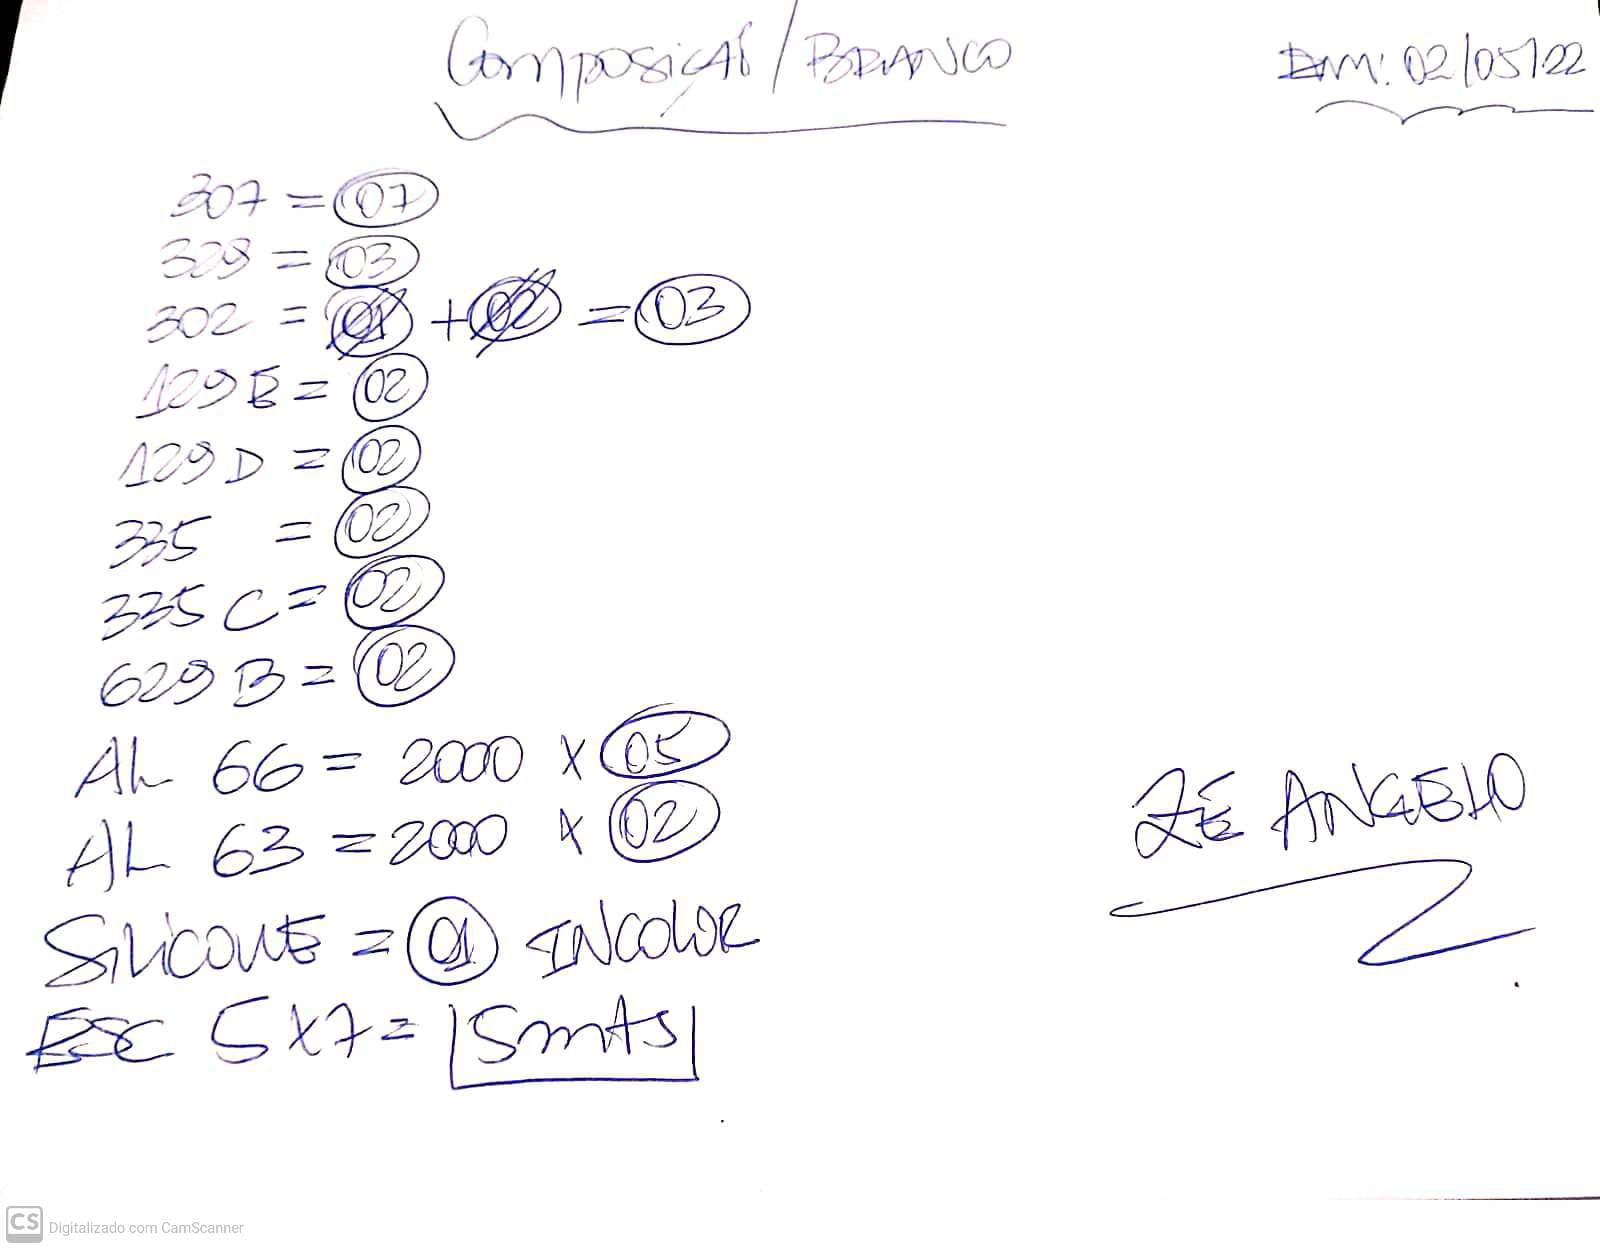 Composição / BRANCO
EM: 02/05/22
307 = 07
328 = 03
302 = 01 + 02 = 03
129 E = 02
129 D = 02
335 = 02
335 C = 02
629 B = 02
AL 66 = 2000 x 05
AL 63 = 2000 x 02
ZÉ ANGELO
SILICONE = 01 INCOLOR
ESC 5x7 = 5mts
CS Digitalizado com CamScanner